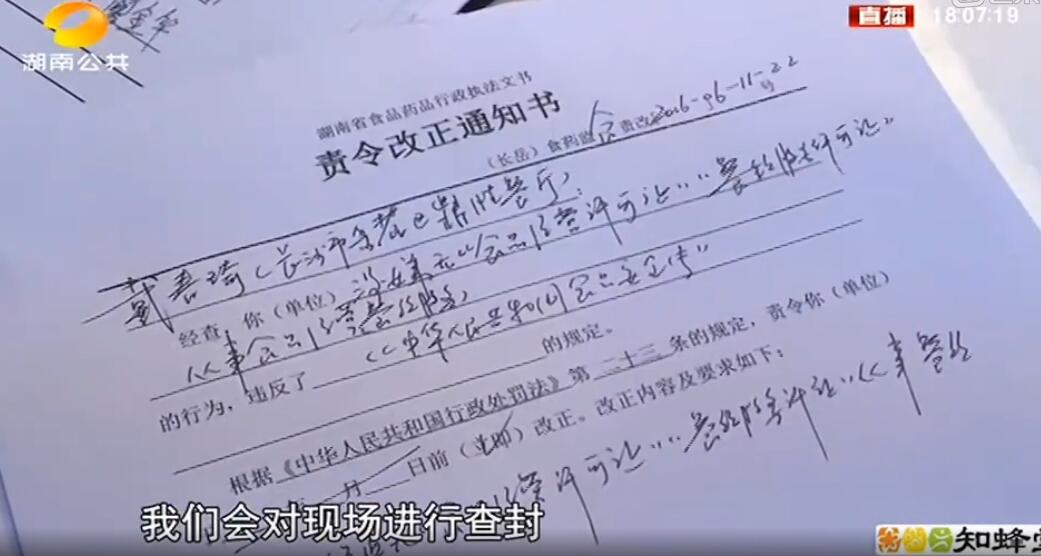 湖南公共
直播
18:07:19
湖南省食品药品行政执法文书
责令改正通知书
（长岳）食药监食责改2016-96-11-22号
戴喜琦（长沙市
餐厅）：
经查，你（单位）涉嫌无《食品经营许可证》、《餐饮服务许可证》
从事食品经营餐饮服务
的行为，违反了《中华人民共和国食品安全法》
的规定。
根据《中华人民共和国行政处罚法》第二十三条的规定，责令你（单位）
月 日前（立即）改正。改正内容及要求如下：
营许可证》、《餐饮服务许可证》从事餐饮
我们会对现场进行查封
知蜂堂